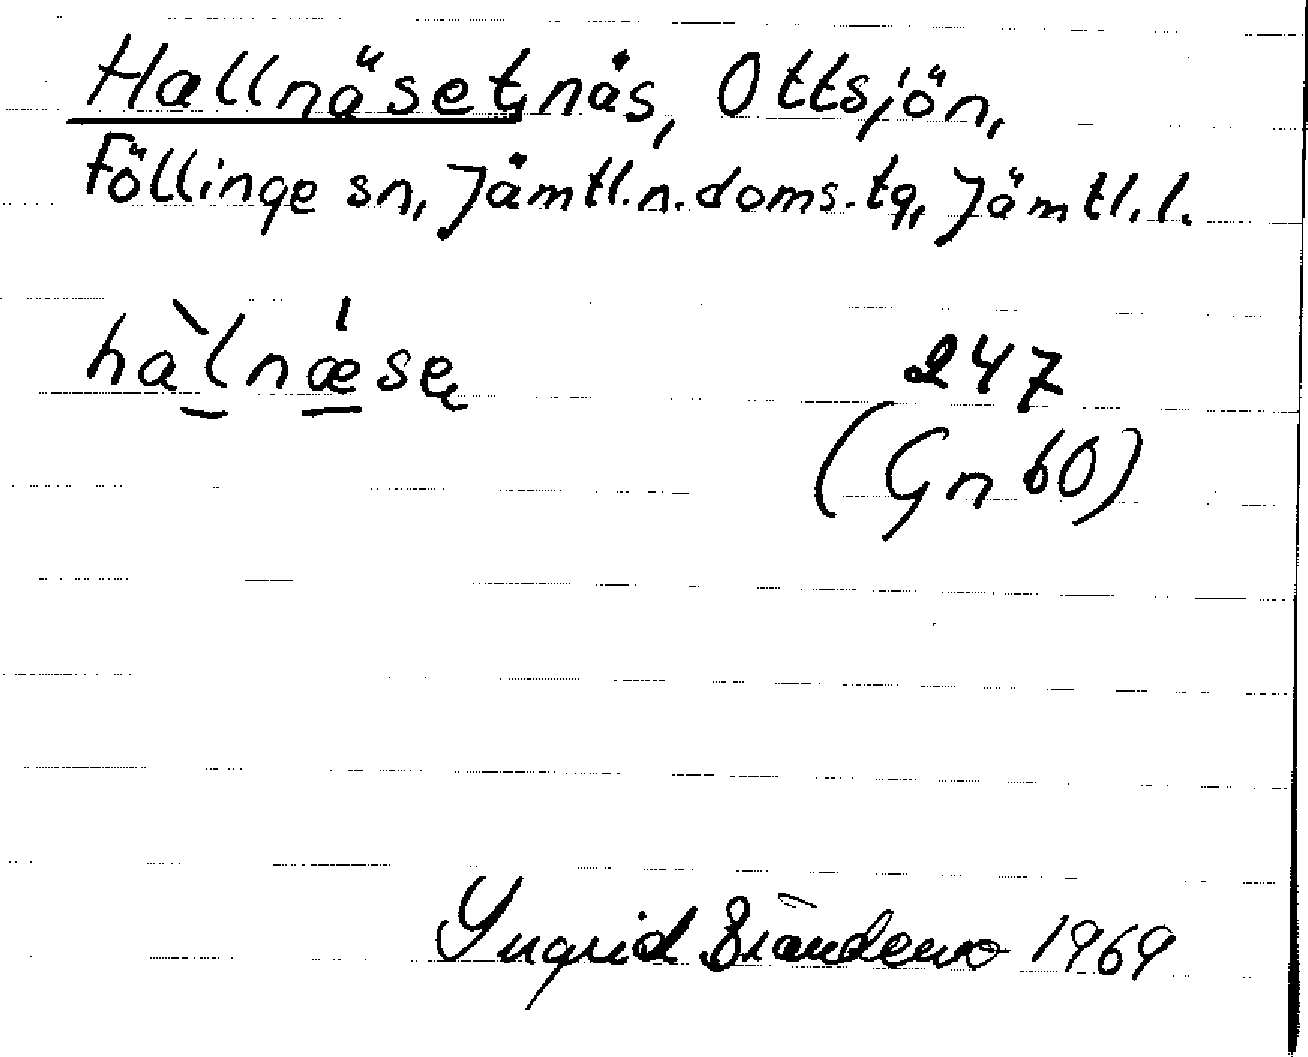 Hallnäset, näs, Ottsjön,
Föllinge sn, Jämtl.n.doms.tg, Jämtl.l.
hàlnǽse
247
(Gn 60)
Ingrid 1969